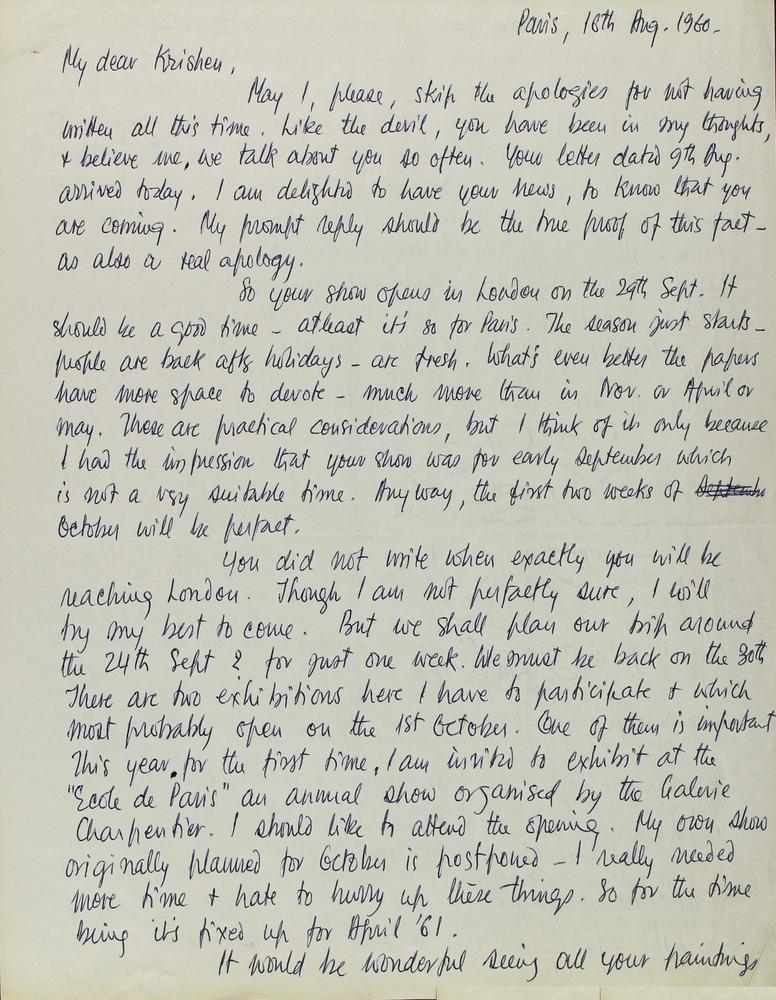 Paris, 16th Aug. 1960.
My dear Krishen,
May I, please, skip the apologies for not having
written all this time. Like the devil, you have been in my thoughts,
& believe me, we talk about you so often. Your letter dated 9th Aug.
arrived today. I am delighted to have your news, to know that you
are coming. My prompt reply should be the true proof of this fact -
as also a real apology.
So your show opens in London on the 29th Sept. It
should be a good time - atleast it's so for Paris. The season just starts -
people are back after holidays - are fresh. What's even better the papers
have more space to devote - much more than in Nov. or April or
May. These are practical considerations, but I think of it only because
I had the impression that your show was for early september which
is not a very suitable time. Anyway, the first two weeks of
October will be perfect.
You did not write when exactly you will be
reaching London. Though I am not perfectly sure, I will
try my best to come. But we shall plan our trip around
the 24th Sept & for just one week. We must be back on the 30th
There are two exhibitions here I have to participate & which
most probably open on the 1st October. One of them is important
This year, for the first time, I am invited to exhibit at the
"Ecole de Paris" an annual show organised by the Galerie
Charpentier. I should like to attend the opening. My own show
originally planned for October is postponed - I really needed
more time & hate to hurry up these things. So for the time
being it's fixed up for April '61.
It would be wonderful seeing all your paintings